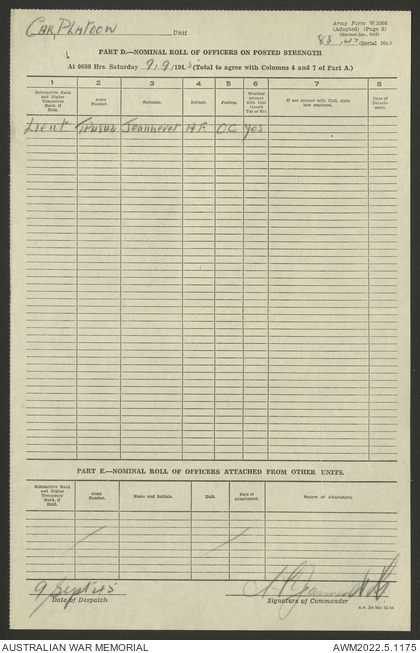 CAR, PLATOON Unit
Army Form W.3008
(Adapted) (Page 2)
(Serial No.)
PART D.—NOMINAL ROLL OF OFFICERS ON POSTED STRENGTH
At 0600 Hrs. Saturday 9/9/194 (Total to agree with Columns 4 and 7 of Part A.)
1 2 3 4 5 6 7 8
Substantive Rank and Higher Temporary Rank if Held. Army Number. Surname. Initials. Posting. Whether present with Unit Yes or No If not present with Unit, state how employed. Date of Detachment.
Lieut Jeanneret A F OC Yes
PART E.—NOMINAL ROLL OF OFFICERS ATTACHED FROM OTHER UNITS.
Substantive Rank and Higher Temporary Rank if Held. Army Number. Name and Initials. Unit. Date of Attachment. Nature of Attachment.
9 Sept 45
Date of Despatch Signature of Commander
AUSTRALIAN WAR MEMORIAL AWM2022.5.1175